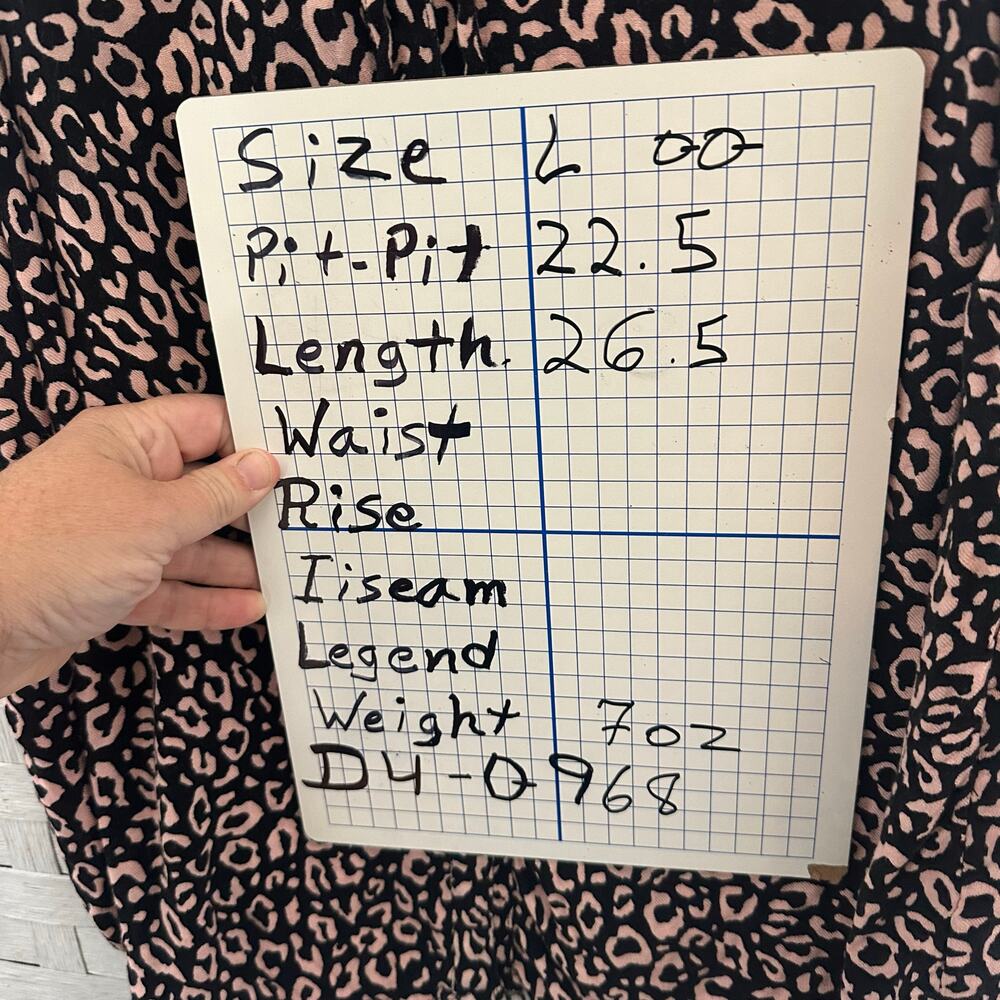 Size L 00
Pit-Pit 22.5
Length. 26.5
Waist
Rise
Iiseam
Legend
Weight 7oz
D4-0968